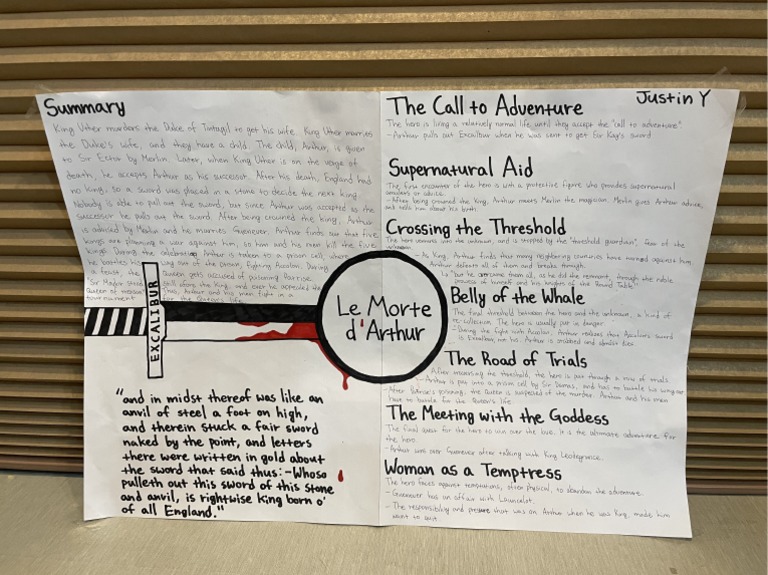 Summary
King Uther murders the Duke of Tintagil to get his wife. King Uther marries
the Duke's wife, and they have a child. The child, Arthur, is given
to Sir Ector by Merlin. Later, when King Uther is on the verge of
death, he accepts Arthur as his successor. After his death, England had
no king, so a sword was placed in a stone to decide the next king.
Nobody is able to pull out the sword, but since Arthur was accepted as the
successor he pulls out the sword. After being crowned the king, Arthur
is advised by Merlin and he marries Guenever. Arthur finds out that five
kings are planning a war against him, so him and his men kill the five
kings. During the celebrating Arthur is taken to a prison cell, where
he battles his way out of the prison, fighting Accolon. During
a feast, the Queen gets accused of poisoning Patrise.
EXCALIBUR
Le Morte
d'Arthur
"and in midst thereof was like an
anvil of steel a foot on high,
and therein stuck a fair sword
naked by the point, and letters
there were written in gold about
the sword that said thus:-Whoso
pulleth out this sword of this stone
and anvil, is rightwise king born o'
of all England."
Justin Y
The Call to Adventure
The hero is living a relatively normal life, until they accept the "call to adventure"
-Arthur pulls out Excalibur when he was sent to get Sir Kay's sword
Supernatural Aid
The first encounter of the hero is with a protective figure who provides supernatural
amulets or advice.
-After being crowned the king, Arthur meets Merlin the magician. Merlin gives Arthur advice,
and tells him about his birth.
Crossing the Threshold
The hero ventures into the unknown, and is stopped by the "threshold guardian", fear of the
unknown.
-As King, Arthur finds that many neighboring countries have worked against him.
Arthur defeats all of them and breaks through.
"but he overcame them all, as he did the remnant, through the noble
prowess of himself and his knights of the Round Table"
Belly of the Whale
The final threshold between the hero and the unknown, a kind of
re-collection. The hero is usually put in danger.
-During the fight with Accolon, Arthur realizes that Accolon's sword
is Excalibur, not his. Arthur is stabbed and almost dies.
The Road of Trials
After crossing the threshold, the hero is put through a row of trials
-Arthur is put into a prison cell by Sir Damas, and has to battle his way out
-After Patrise's poisoning, the Queen is suspected of the murder. Arthur and his men
have to battle for the Queen's life
The Meeting with the Goddess
The final quest for the hero to win over the love. It is the ultimate adventure for
the hero.
-Arthur won over Guenever after talking with King Leodegrance.
Woman as a Temptress
The hero faces against temptations, often physical, to abandon the adventure.
-Guenever has an affair with Launcelot.
-The responsibility and pressure that was on Arthur when he was King, made him
want to quit.